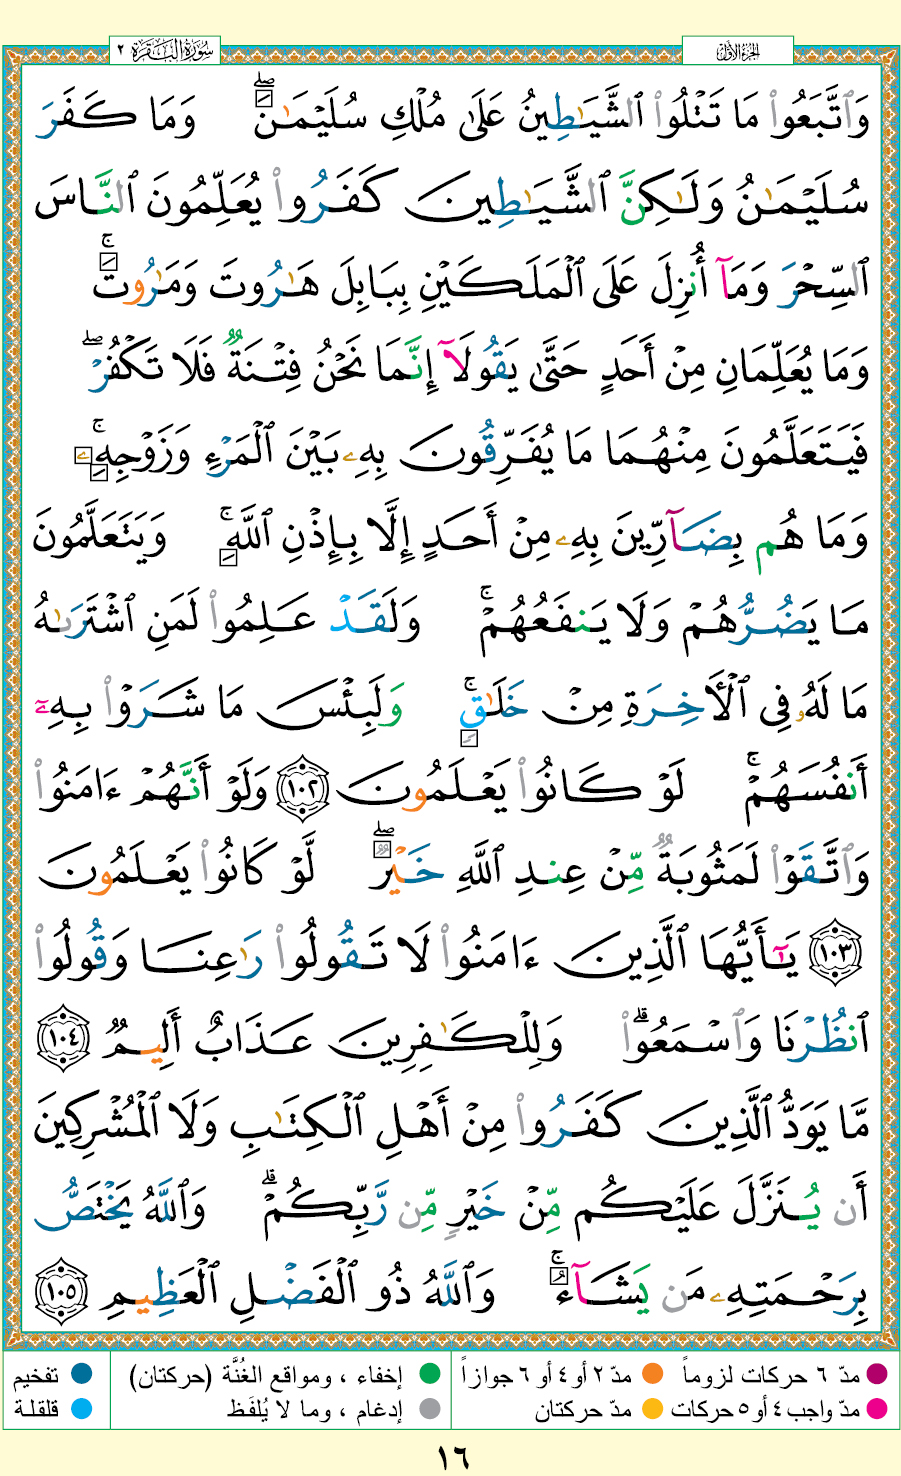 الجزء الأول
سورة البقرة ٢
وَٱتَّبَعُوا۟ مَا تَتْلُوا۟ ٱلشَّيَـٰطِينُ عَلَىٰ مُلْكِ سُلَيْمَـٰنَ ۖ وَمَا كَفَرَ
سُلَيْمَـٰنُ وَلَـٰكِنَّ ٱلشَّيَـٰطِينَ كَفَرُوا۟ يُعَلِّمُونَ ٱلنَّاسَ
ٱلسِّحْرَ وَمَآ أُنزِلَ عَلَى ٱلْمَلَكَيْنِ بِبَابِلَ هَـٰرُوتَ وَمَـٰرُوتَ ۚ
وَمَا يُعَلِّمَانِ مِنْ أَحَدٍ حَتَّىٰ يَقُولَآ إِنَّمَا نَحْنُ فِتْنَةٌ فَلَا تَكْفُرْ ۖ
فَيَتَعَلَّمُونَ مِنْهُمَا مَا يُفَرِّقُونَ بِهِۦ بَيْنَ ٱلْمَرْءِ وَزَوْجِهِۦ ۚ
وَمَا هُم بِضَآرِّينَ بِهِۦ مِنْ أَحَدٍ إِلَّا بِإِذْنِ ٱللَّهِ ۚ وَيَتَعَلَّمُونَ
مَا يَضُرُّهُمْ وَلَا يَنفَعُهُمْ ۚ وَلَقَدْ عَلِمُوا۟ لَمَنِ ٱشْتَرَىٰهُ
مَا لَهُۥ فِى ٱلْـَٔاخِرَةِ مِنْ خَلَـٰقٍ ۚ وَلَبِئْسَ مَا شَرَوْا۟ بِهِۦٓ
أَنفُسَهُمْ ۚ لَوْ كَانُوا۟ يَعْلَمُونَ ١٠٢ وَلَوْ أَنَّهُمْ ءَامَنُوا۟
وَٱتَّقَوْا۟ لَمَثُوبَةٌ مِّنْ عِندِ ٱللَّهِ خَيْرٌ ۖ لَّوْ كَانُوا۟ يَعْلَمُونَ
١٠٣ يَـٰٓأَيُّهَا ٱلَّذِينَ ءَامَنُوا۟ لَا تَقُولُوا۟ رَٰعِنَا وَقُولُوا۟
ٱنظُرْنَا وَٱسْمَعُوا۟ ۗ وَلِلْكَـٰفِرِينَ عَذَابٌ أَلِيمٌ ١٠٤
مَّا يَوَدُّ ٱلَّذِينَ كَفَرُوا۟ مِنْ أَهْلِ ٱلْكِتَـٰبِ وَلَا ٱلْمُشْرِكِينَ
أَن يُنَزَّلَ عَلَيْكُم مِّنْ خَيْرٍ مِّن رَّبِّكُمْ ۗ وَٱللَّهُ يَخْتَصُّ
بِرَحْمَتِهِۦ مَن يَشَآءُ ۚ وَٱللَّهُ ذُو ٱلْفَضْلِ ٱلْعَظِيمِ ١٠٥
مدّ ٦ حركات لزوماً مدّ ٢ أو ٤ أو ٦ جوازاً إخفاء ، ومواقع الغُنَّة (حركتان) تفخيم
مدّ واجب ٤ أو ٥ حركات مدّ حركتان إدغام ، وما لا يُلفَظ قلقلة
١٦